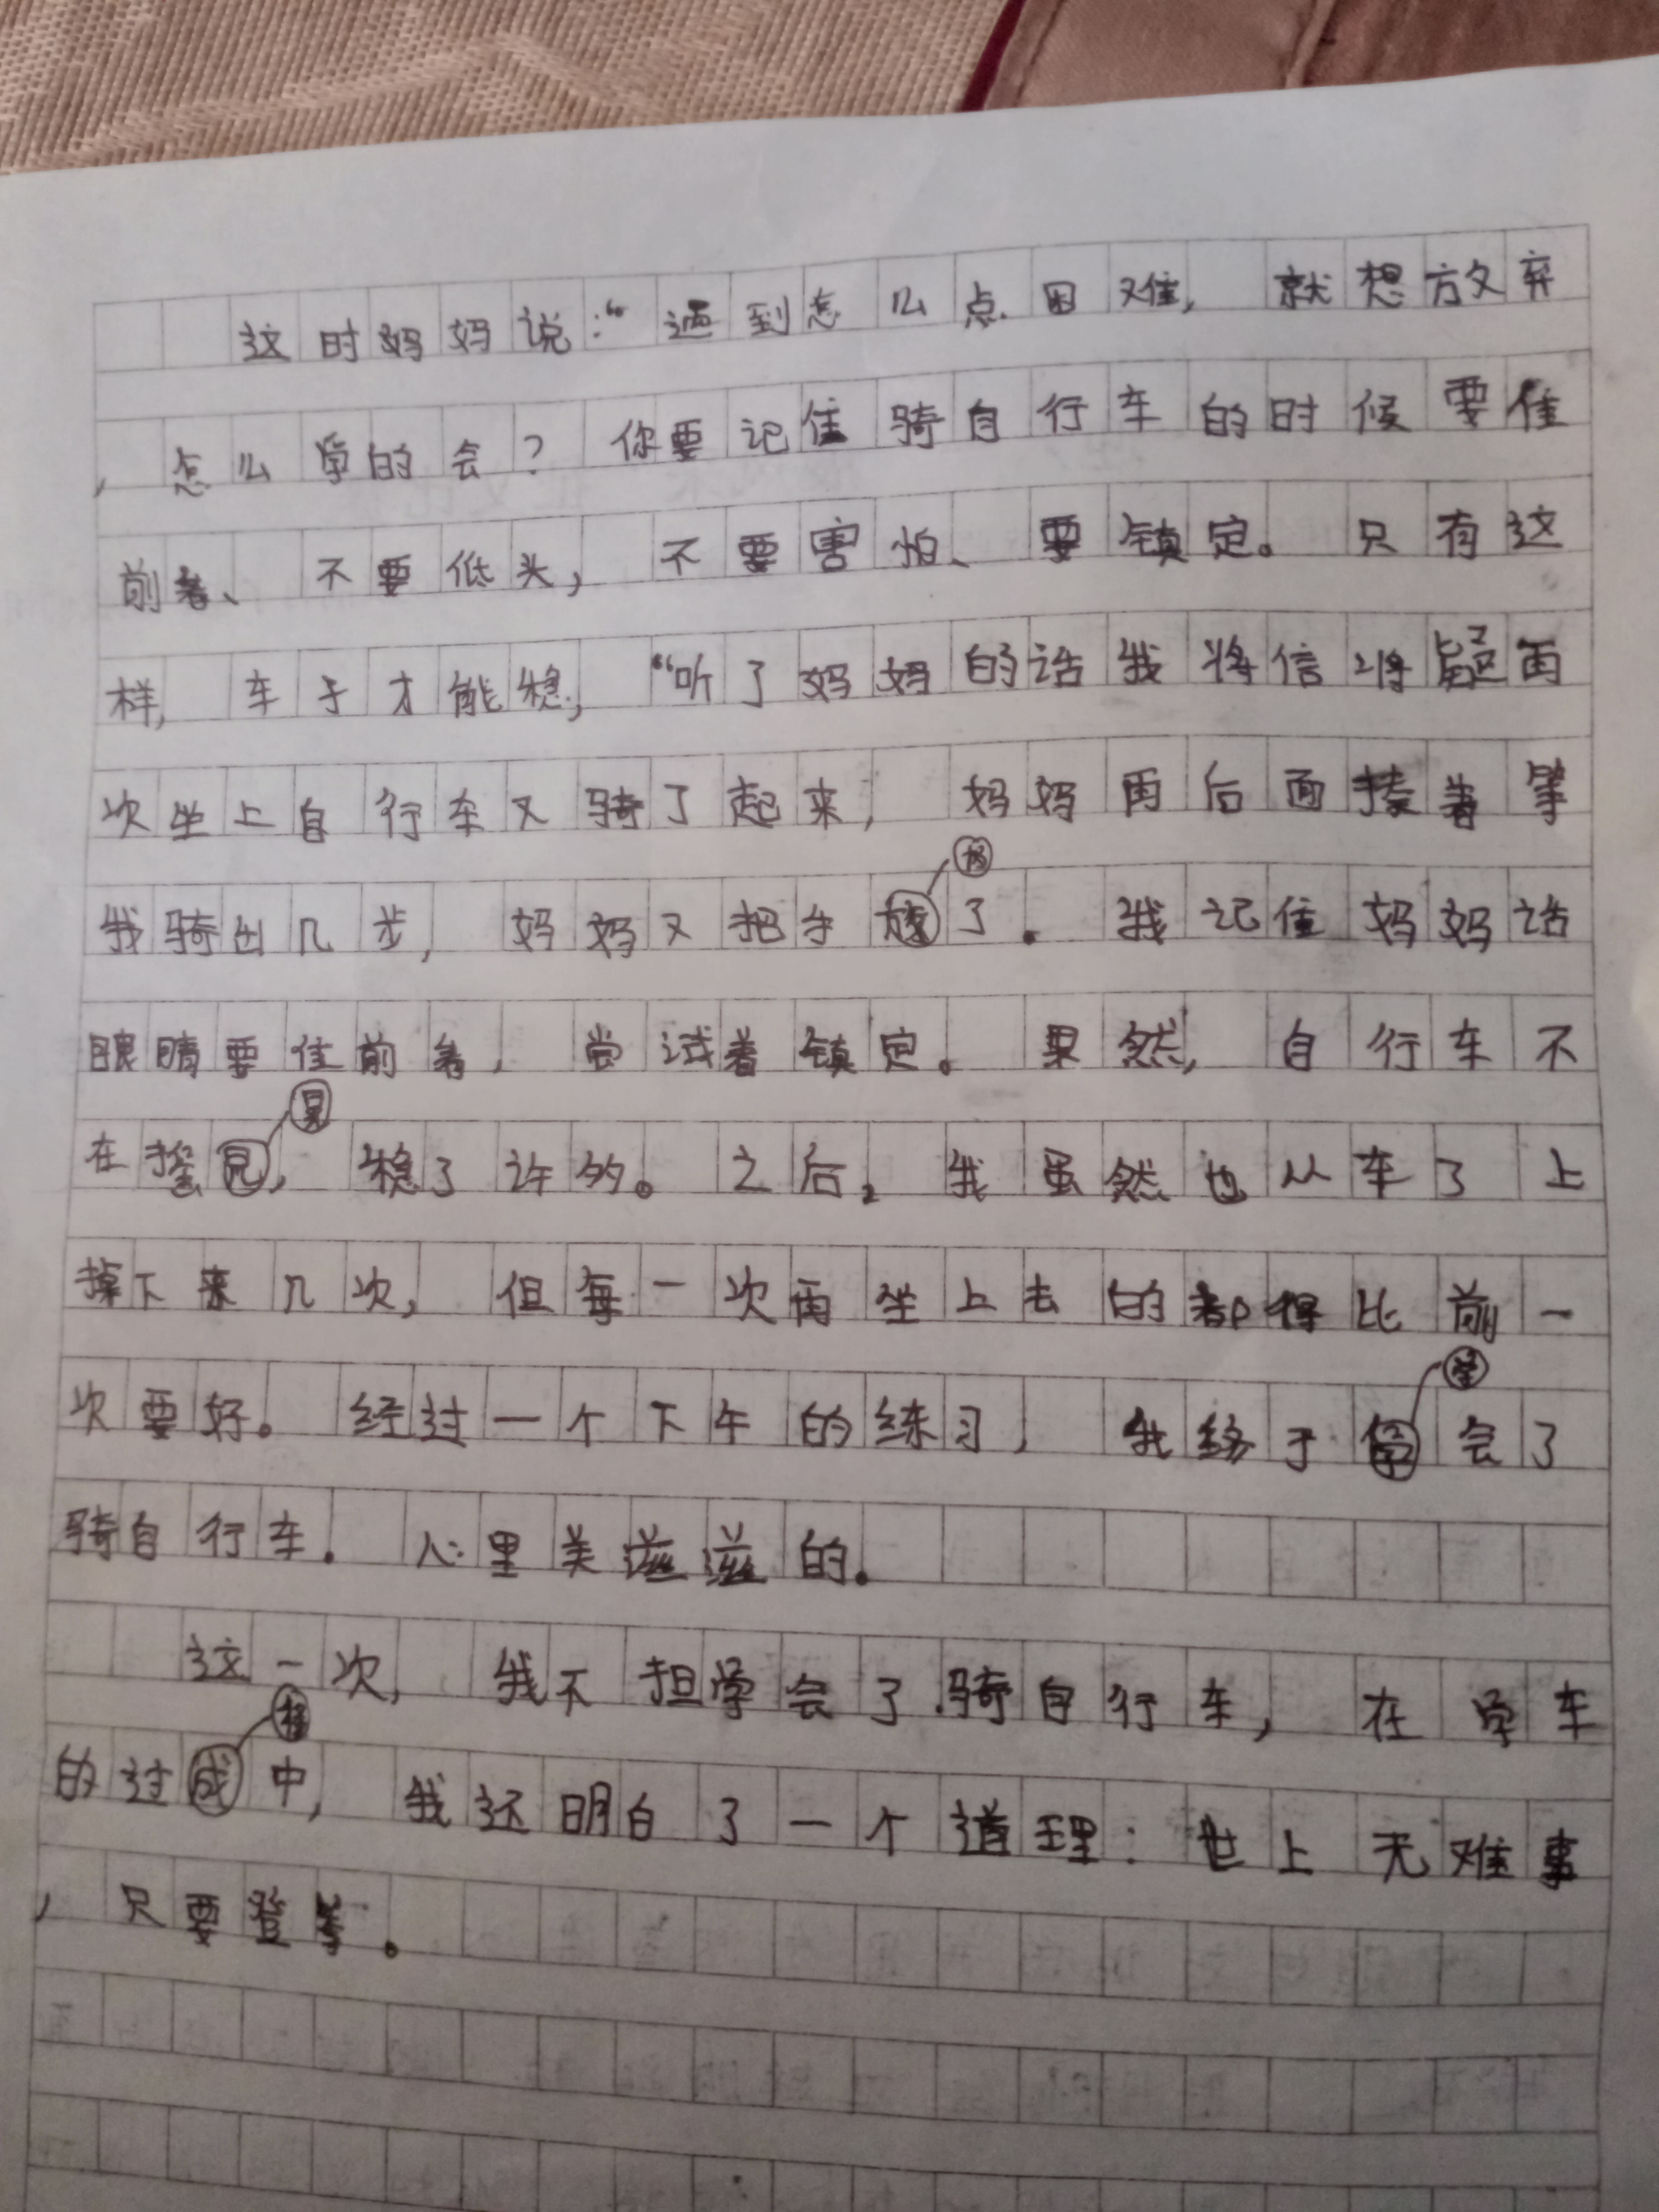 这时妈妈说:“遇到怎么点困难,就想放弃
,怎么学的会?你要记住骑自行车的时候要住
前看、不要低头,不要害怕、要镇定。只有这
样,车子才能稳,“听了妈妈的话我将信将疑再
次坐上自行车又骑了起来,妈妈再后面接着等
我骑出几步,妈妈又把手了。我记住妈妈话
眼睛要住前看,尝试着镇定。果然,自行车不
晃
在摇,稳了许多。之后,我虽然也从车了上
掉下来几次,但每一次再坐上去的都得比前一
次要好。经过一个下午的练习,我终于会了
学
骑自行车.心里美滋滋的.
这一次,我不担学会了骑自行车,在学车
程
的过成中,我还明白了一个道理:世上无难事
,只要登峯.